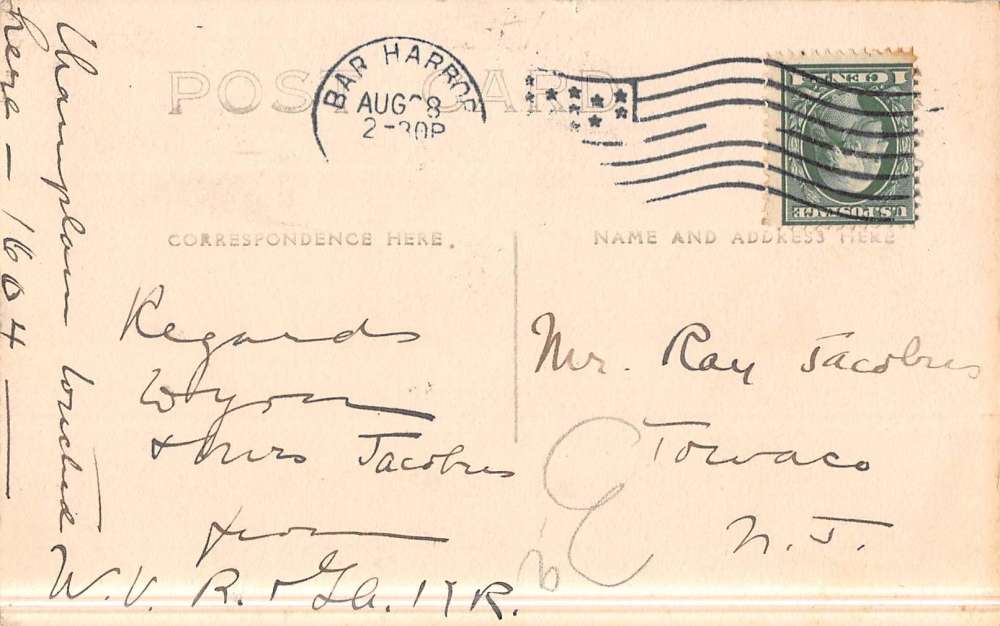 POST CARD
BAR HARBOR
AUG 28
2-30P
1 CENT 1
U.S. POSTAGE
CORRESPONDENCE HERE
NAME AND ADDRESS HERE
Champlain touched
here - 1604
Regards
to you
& Mrs Jacobus
from
W. V. R. & Ga. V R.
Mr. Ray Jacobus
Towaco
N. J.